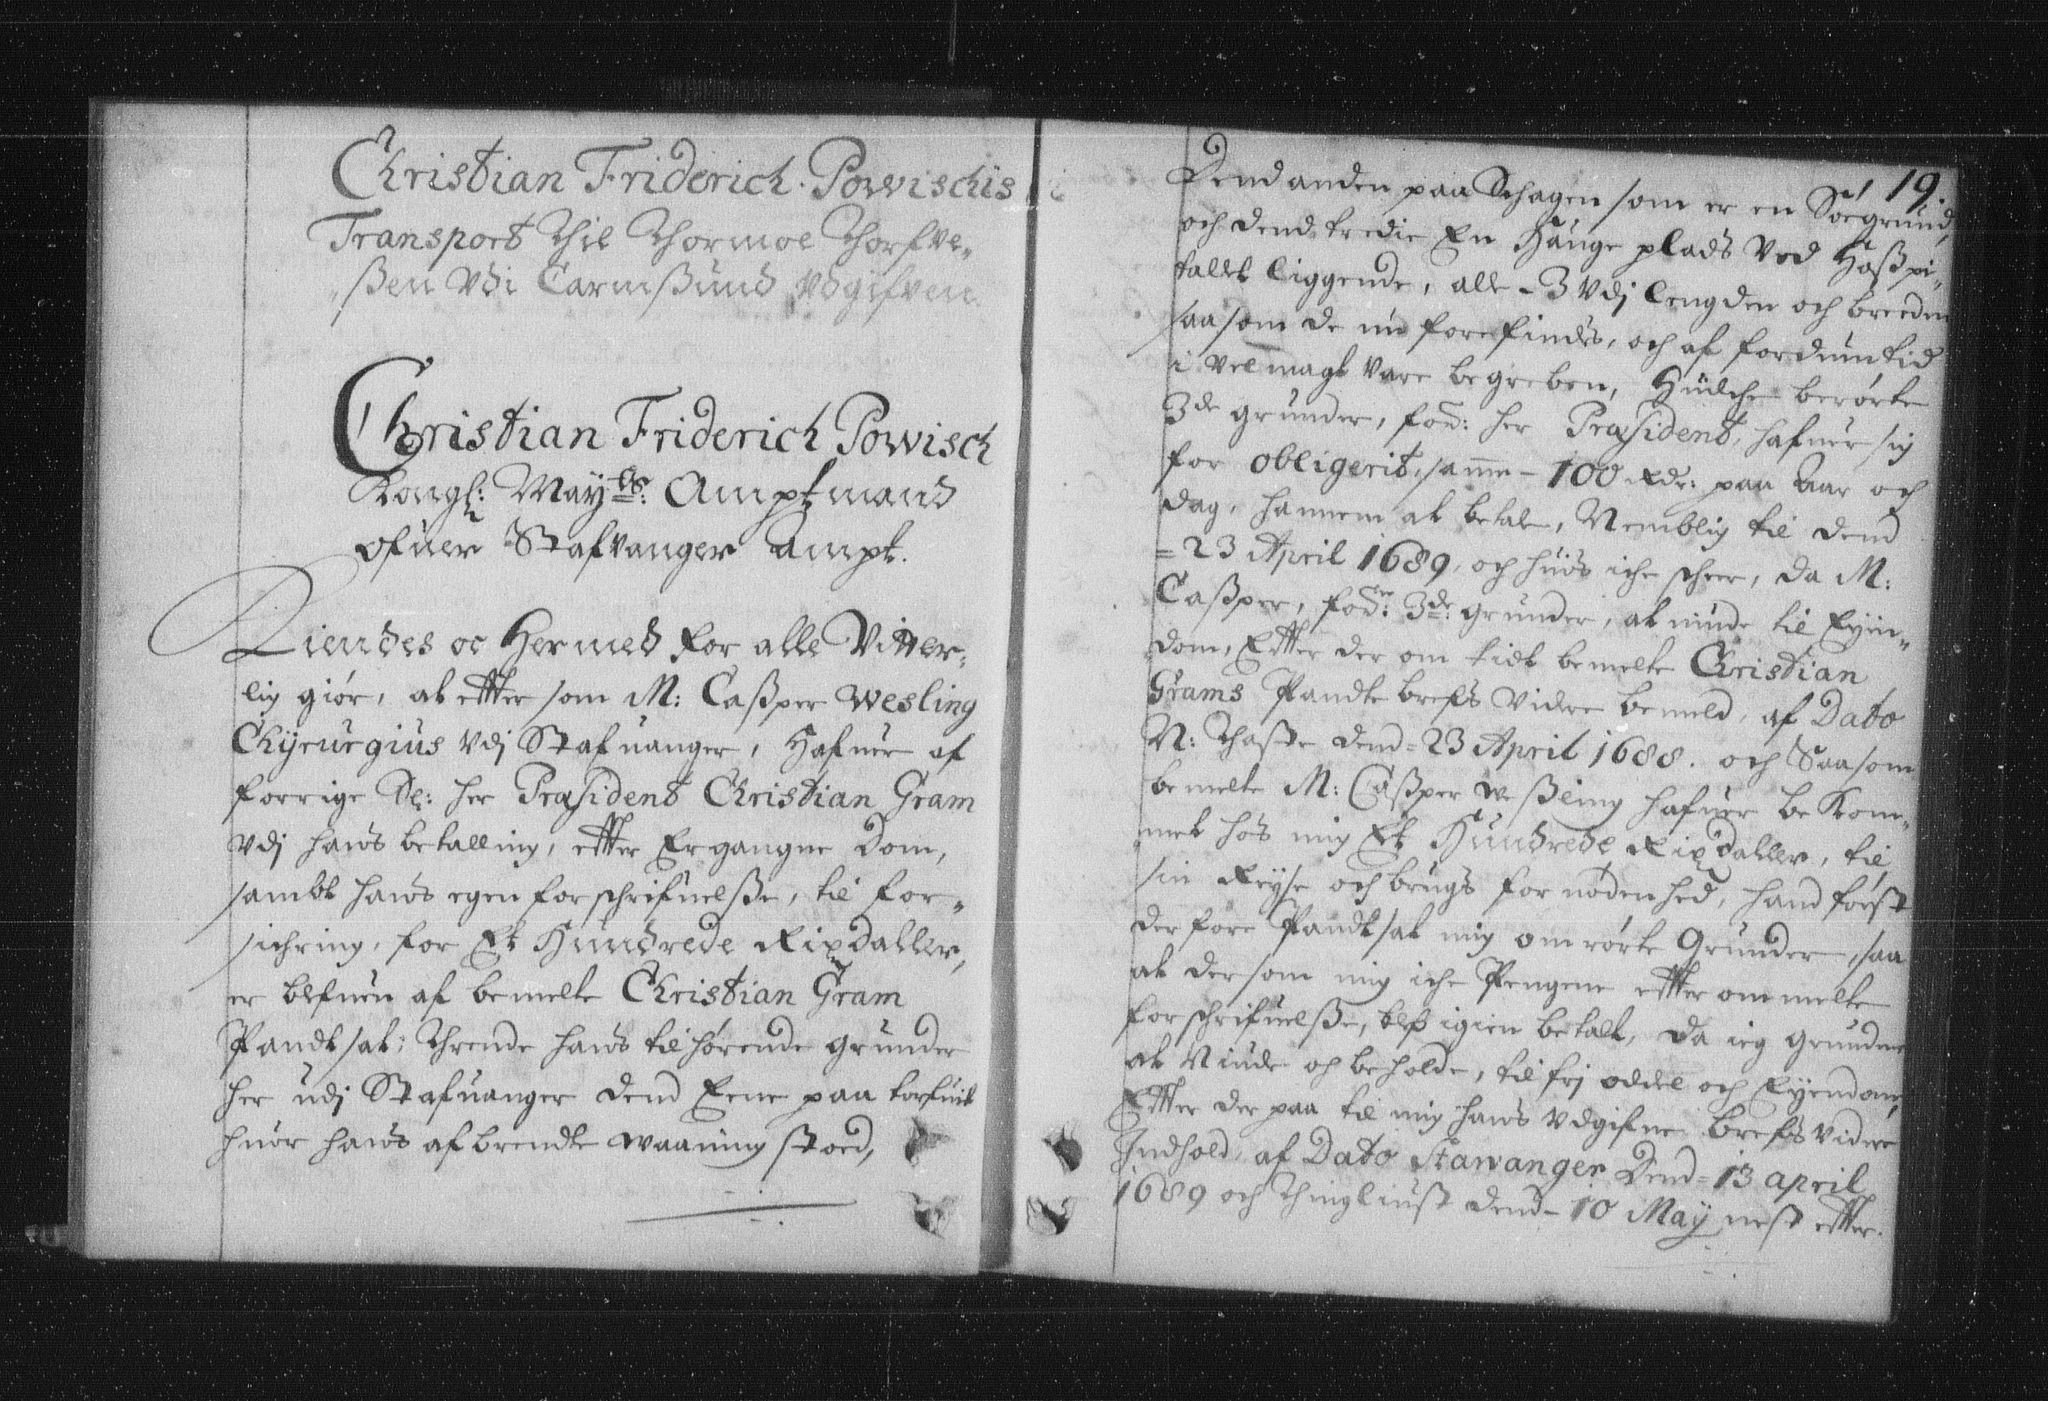 Christian Friderich Powischis
Transport Thil Thormoe Thorfve-
ßen Vdi Carmßund Vdgifven
Christian Friderich Powisch
Kongl: Mayts: Amptmand
ofuer Stafvanger Ampt.
Kiendes oc Hermed for alle Vitter-
lig giør, at effter som M: Caßper Wesling
Chyrurgius Vdj Stafuanger, Hafuer af
forrige Sl: her Præsident Christian Gram
Vdj hans betalling, effter Ergangne Dom,
sambt hans egen forschrifuelße, til for-
sichring, for Et Hundrede Rixdaller,
er blefuen af bemelte Christian Gram
Pandtsat; Thrende hans tilhørende grunder
her udj Stafuanger dend Eene paa torfuit
huor hans afbrendte waaning stoed,
19.
Dend anden paa Schagen som er en Søegrund,
och dend tredie En Hauge plads Ved Haßpi-
tallet liggende, alle 3 Vdj lengden och breeden
saasom de nu forefindes, och af fordum tid
i Velmagt vare begreben, Huilche berørte
3de grunder, fod: her Præsident, hafuer sig
for obligerit, samme 100 Rdr: paa Aar och
dag, hannem at betale, Nemblig til dend
23 April 1689, och huis iche scheer, da M:
Caßper, fode: 3de: grunder, at niude til Eyen-
dom, Effter der om tidt bemelte Christian
Grams Pandte brefs Vidre bemeld, af Dato
N: Thaste dend 23 April 1688. och Saasom
bemelte M: Caßper Weßling hafuer bekom-
met hos mig Et Hundrede Rixdaller, til
sin Reyse och brugs fornødenhed, hand først
derfore Pandtsat mig omrørte Grunder, saa
at dersom mig iche Pengene effter ommelte
forschrifuelße, blef igien betalt, da ieg grundene
at Niude och beholde, til frj oddel och Eyendom,
Effter der paa til mig hans Vdgifne brefs Videre
Indhold, af Dato Stawanger Dend 13 april
1689 och Thingliust dend 10 May nest effter.